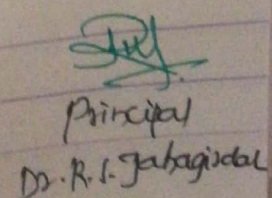 Principal
Dr. R. S. Jahagirdar